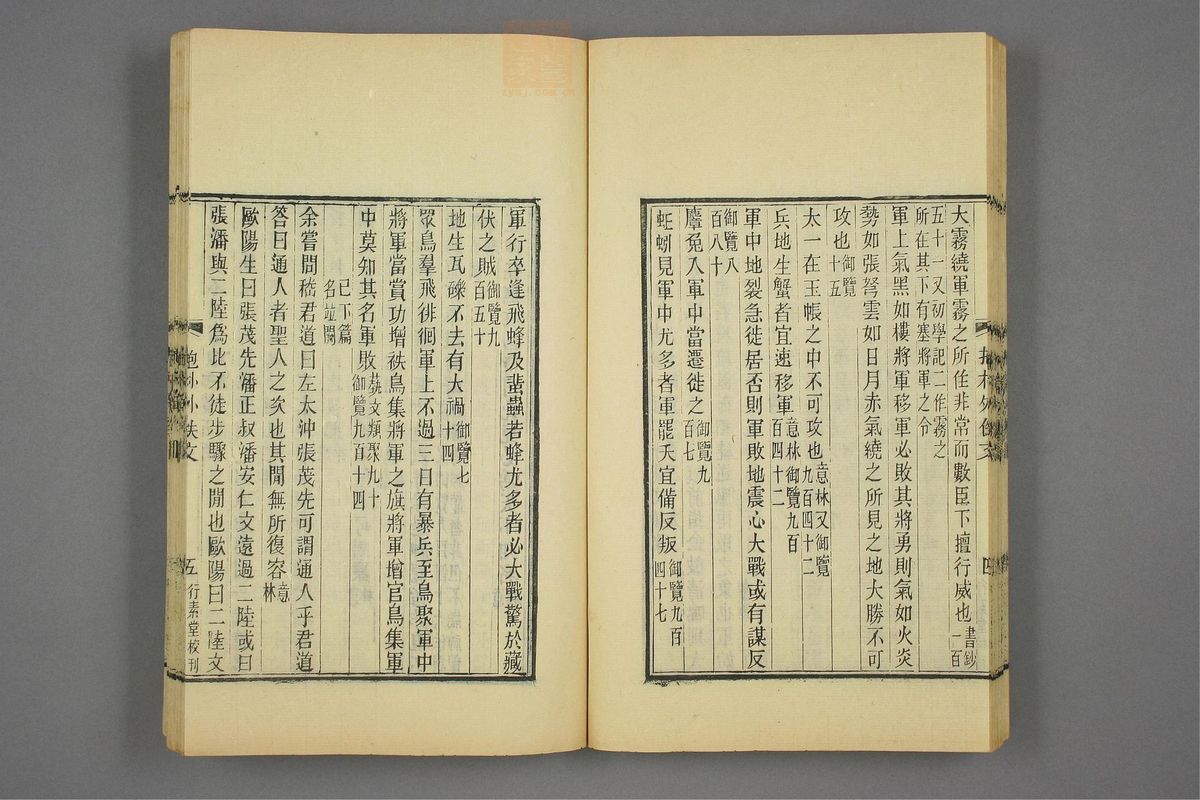 大霧繞軍霧之所在非常而數臣下擅行威也書鈔一百
五十一又初學記二作霧之所在其下有塞將軍之令
軍上氣黑如樓將軍移軍必敗其將勇則氣如火炎
勢如張弩雲如日月赤氣繞之所見之地大勝不可
攻也御覽十五
太一在玉帳之中不可攻也意林又御覽九百四十二
兵地生蟹者宜速移軍意林御覽九百百四十二
軍中地裂急徙居否則軍敗地震心大戰或有謀反
御覽八百八十
麞兔入軍中當遷徙之御覽九百七
蚯蚓見軍中尤多者軍罷天宜備反叛御覽九百四十七
軍行卒逢飛蜂及蜚蟲若蜂尤多者必大戰驚於藏
伏之賊御覽九百五十
地生瓦礫不去有大禍御覽七十四
眾鳥羣飛徘徊軍上不過三日有暴兵至鳥聚軍中
將軍當賞功增秩鳥集將軍之旗將軍增官鳥集軍
中莫知其名軍敗蓺文類聚九十御覽九百十四
已下篇名竝闕
余嘗問嵇君道曰左太沖張茂先可謂通人乎君道
答曰通人者聖人之次也其閒無所復容意林
歐陽生曰張茂先潘正叔潘安仁文遠過二陸或曰
張潘與二陸爲比不徒步驟之閒也歐陽曰二陸文
五
行素堂校刊